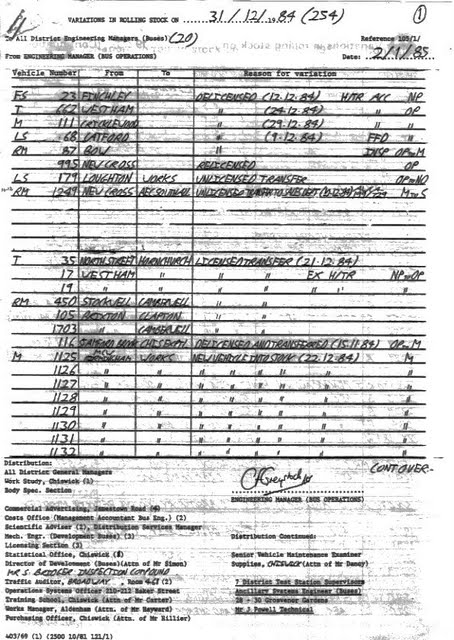 ①
VARIATIONS IN ROLLING STOCK ON 31/12/1984 (254)
To All District Engineering Managers (Buses) (20) Reference 103/1/
From ENGINEERING MANAGER (BUS OPERATIONS) Date: 2/1/85
Vehicle Number From To Reason for variation
ES 23 FINCHLEY DELICENSED (12.12.84) H/TR ACC NP
T 662 WESTHAM " (24.12.84) " OP
M 111 CRICKLEWOOD " (29.12.84) " "
LS 68 CATFORD " (9.12.84) FFD "
RM 87 BOW " INSP OP to M
995 NEW CROSS RELICENSED OP
LS 179 LOUGHTON WORKS UNLICENSED TRANSFER OP to NO
RM 1249 NEW CROSS AEC SOUTHALL UNLICENSED M to S
T 35 NORTH STREET HORNCHURCH LICENSED TRANSFER (21.12.84)
17 WESTHAM " " " EX H/TR NP to OP
19 " " " " " "
RM 450 STOCKWELL CAMBERWELL " "
105 BRIXTON CLAPTON " "
1703 " CAMBERWELL " "
116 STAMFORD BROOK CHISENH DELICENSED AND TRANSFERRED (15.11.84) OP to M
M 1125 WORKS NEW VEHICLE INTO STOCK (22.12.84) M
1126 " " " " " " "
1127 " " " " " " "
1128 " " " " " " "
1129 " " " " " " "
1130 " " " " " " "
1131 " " " " " " "
1132 " " " " " " "
CONT OVER-
Distribution:
All District General Managers
Work Study, Chiswick (1)
Body Spec. Section
ENGINEERING MANAGER (BUS OPERATIONS)
Commercial Advertising, Jamestown Road
Costs Office (Management Accountant Bus Eng.) (2)
Scientific Adviser (2), Distribution Services Manager
Mech. Engr. (Development Buses) (3)
Licensing Section (3)
Statistical Office, Chiswick
Director of Development (Buses)(Attn of Mr Simon)
MR S. BRIDGER INSPECTION COMPOUND
Traffic Auditor, BROADWAY. Room (2)
Operations Systems Officer 210-212 Baker Street
Training School, Chiswick (Attn of Mr Carter)
Works Manager, Aldenham (Attn of Mr Hayward)
Purchasing Officer, Chiswick (Attn of Mr Rillier)
Distribution Continued:
Senior Vehicle Maintenance Examiner
Supplies, CHISWICK (Attn of Mr Dancy)
7 District Test Station Supervisors
Ancillary Systems Engineer (Buses)
28 - 30 Grosvenor Gardens
Mr J Powell Technical
403/69 (1) (2500 10/81 121/1)